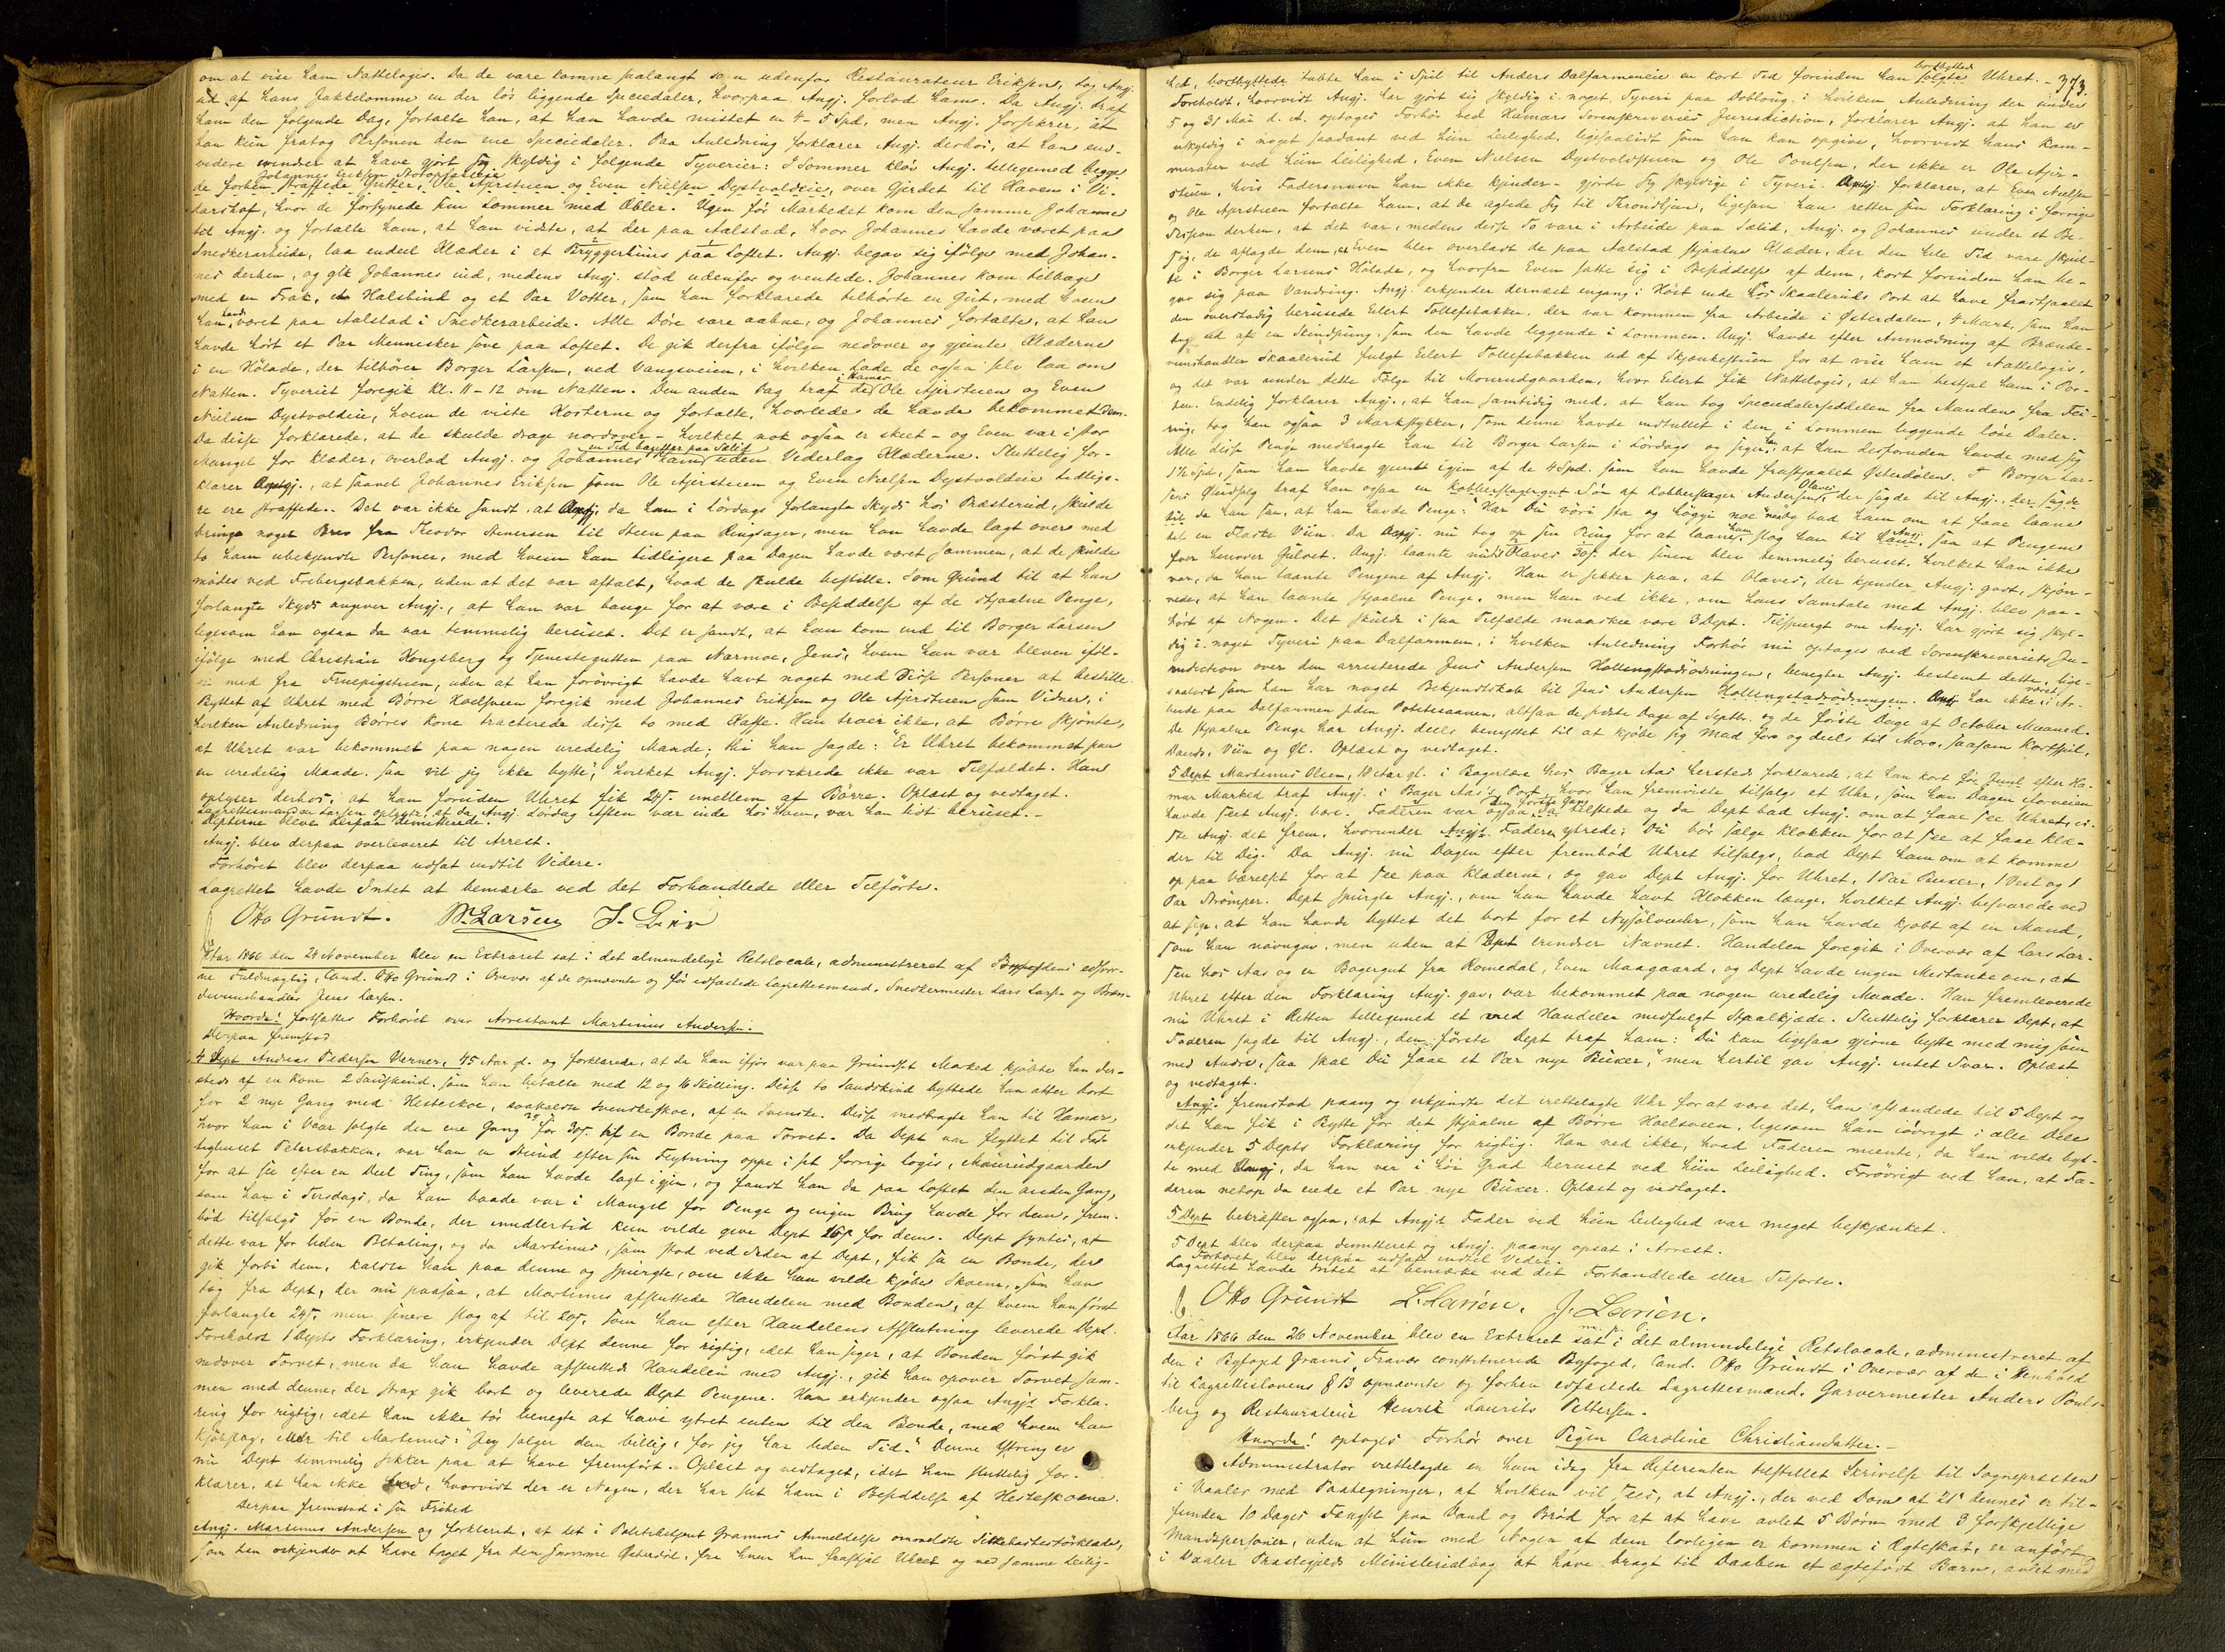 om at vise ham Nattelogis. Da de vare komne saalangt som udenfor Restaurateur Eriksens, tog Angj.
ud af hans Jakkelomme en der løs liggende Speciedaler, hvorpaa Angj. forlod ham. Da Angj. traf
ham den følgende Dag, fortalte han, at han havde mistet en 4-5 Spd., men Angj. forsikrer, at
han kun fratog Personen den ene Speciedaler. Paa Anledning forklarer Angj. derhos, at han end-
videre erindrer at have gjort sig skyldig i følgende Tyverier: I Sommer klöv Angj. tilligemed begge
Johannes Eriksen
de forhen straffede Gutter, Ole Ajerstuen og Even Nielsen Dystvoldeie, over Gjerdet til Haven i Vi-
darshof, hvor de forsynede sine Lommer med Æbler. Ugen før Markedet kom den samme Johannes
til Angj. og fortalte ham, at han vidste, at der paa Aalstad, hvor Johannes havde været paa
Snedkerarbeide, laa endeel Klæder i et Bryggerhuus paa Loftet. Angj. begav sig ifølge med Johan-
nes derhen, og gik Johannes ind, medens Angj. stod udenfor og ventede. Johannes kom tilbage
med en Frak, et Halsbind og et Par Votter, som han forklarede tilhörte en Gut, med hvem
han havde været paa Aalstad i Snedkerarbeide. Alle Döre vare aabne, og Johannes fortalte, at han
havde hört et Par Mennesker sove paa Loftet. De gik derfra ifølge nedover og gjemte Klæderne
i en Hölade, der tilhörer Borger Larsen, ved Vangsveien, i hvilken Lade de ogsaa selv laa om
Natten. Tyveriet foregik Kl. 11-12 om Natten. Den anden Dag traf de i Hamar Ole Ajerstuen og Even
Nielsen Dystvoldeie, hvem de viste Kosterne og fortalte, hvorledes de havde bekommet dem.
Da disse forklarede, at de skulde drage nordover - hvilket nok ogsaa er skeet - og Even var i stor
Mangel for Klæder, overlod Angj. og Johannes en Tid bagefter paa Sælid ham uden Vederlag Klæderne. Sluttelig for-
klarer Angj., at saavel Johannes Eriksen som Ole Ajerstuen og Even Nielsen Dystvoldeie tidlige-
re ere straffede. Det var ikke sandt, at Angj., da han i Lördags forlangte Skyds hos Præsterud, skulde
bringe noget Brev fra Theodor Stenersen til Steen paa Ringsager, men han havde lagt over med
to ham ubekjendte Personer, med hvem han tidligere paa Dagen havde været sammen, at de skulde
mödes ved Frebergsbakken, uden at det var aftalt, hvad de skulde bestille. Som Grund til at han
forlangte Skyds angiver Angj., at han var bange for at være i Besiddelse af de stjaalne Penge,
ligesom han ogsaa da var temmelig beruset. Det er sandt, at han kom ind til Borger Larsen
ifølge med Christian Kongsberg og Tjenestegutten paa Narmoe, Jens, hvem han var bleven iföl-
ge med fra Fruepigstuen, uden at han forövrigt havde havt noget med disse Personer at bestille.
Byttet af Uhret med Börre Hoelsveen foregik med Johannes Eriksen og Ole Ajerstuen som Vidner, i
hvilken Anledning Börres Kone tracterede disse to med Kaffe. Han troer ikke, at Börre skjönte,
at Uhret var bekommet paa nogen uredelig Maade, thi han sagde: "Er Uhret bekommet paa
en uredelig Maade, saa vil jeg ikke bytte", hvilket Angj. forsikrede ikke var Tilfældet. Han
oplyser derhos, at han foruden Uhret fik 24ß. imellem af Börre. Oplæst og vedtaget.
Lagrettesmanden Larsen oplyser, at da Angj. Lördag Aften var inde hos ham, var han lidt beruset.-
Depterne bleve derpaa demitterede.
Angj. blev derpaa overleveret til Arrest.
Forhöret blev derpaa udsat indtil Videre.
Lagrettet havde Intet at bemærke ved det Forhandlede eller Tilförte.
Otto Grundt.
Aar 1866 den 24 November blev en Extraret sat i det almindelige Retslocale, administreret af Byfogdens edsvor-
ne Fuldmægtig, Cand. Otto Grundt i Overvær af de opnævnte og før edfæstede Lagrettesmænd, Snedkermester Lars Larsen og Bræn-
deviinshandler Jens Larsen.
Hvorda! fortsattes Forhöret over Arrestant Martinus Andersen.
Derpaa fremstod
4 Dept Andreas Pedersen Verner, 45 Aar gl. og forklarede, at da han ifjor var paa Grundset Marked kjöbte han der-
steds af en Kone 2 Saueskind, som han betalte med 12 og 16 Skilling. Disse to Saueskind byttede han atter bort
for 2 nye Gang med Hesteskoe, saakaldte Svenskeskoe, af en Svenske. Disse medbragte han til Hamar,
hvor han i Vaar solgte den ene Gang for 30ß. til en Bonde paa Torvet. Da Dept var flyttet til Fat-
tighuset Petersbakken, var han en Stund efter sin Flytning oppe i sit forrige Logis, Mourudgaarden
for at se efter en Deel Ting, som han havde lagt igjen, og fandt han da paa Loftet den anden Gang,
som han i Tirsdags, da han baade var i Mangel for Penge og ingen Brug havde for dem, frem-
böd tilsalgs for en Bonde, der imidlertid kun vilde give Dept 16ß for dem. Dept syntes, at
dette var for liden Betaling, og da Martinus, som stod ved Siden af Dept, fik se en Bonde, der
gik forbi dem, kaldte han paa denne og spurgte, om ikke han vilde kjöbe Skoene, som han
tog fra Dept, der nu paasaa, at Martinus afsluttede Handelen med Bonden, af hvem han först
forlangte 24ß. men senere slog af til 20ß. som han efter Handelens Afslutning leverede Dept.
Foreholdt 1 Depts Forklaring, erkjender Dept denne for rigtig, idet han siger, at Bonden först gik
nedover Torvet, men da han havde afsluttet Handelen med Angj., gik han opover Torvet sam-
men med denne, der strax gik bort og leverede Dept Pengene. Han erkjender ogsaa Angjs Forkla-
ring for rigtig, idet han ikke tör benegte at have ytret enten til den Bonde, med hvem han
kjöbslog, eller til Martinus: "Jeg sælger dem billig, for jeg har liden Tid." Denne Ytring er
nu Dept temmelig sikker paa at have fremfört. Oplæst og vedtaget, idet han sluttelig for-
klarer, at han ikke ved, hvorvidt der er Nogen, der har seet ham i Besiddelse af Hesteskoene.
Derpaa fremstod i sin Frihed
Angj. Martinus Andersen og forklaret, at det i Politibetjent Gramms Anmeldelse ommeldte
som han erkjender at have taget fra den samme Østerdöl, fra hvem han frastjal Uhret og ved samme Leilig-
373.
hed, bortbyttede tabte han i Spil til Anders Dalfarmeneie en kort Tid forinden han solgte bortbyttede Uhret.-
Foreholdt, hvorvidt Angj. har gjort sig skyldig i noget Tyveri paa Dobloug, i hvilken Anledning der under
5 og 31 Mai d. A. optoges Forhör ved Hamars Sorenskriveries Jurisdiction, forklarer Angj. at han er
uskyldig i noget saadant ved hiin Leilighed, ligesaalidt som han kan opgive, hvorvidt hans Kam-
merater ved hiin Leilighed, Even Nielsen Dystvoldstuen og Ole Poulsen, der ikke er Ole Ajer-
stuen, hvis Fadersnavn han ikke kjender - gjorde sig skyldige i Tyveri. Angj. forklarer, at Even Nielsen
og Ole Ajerstuen fortalte ham, at de agtede sig til Trondhjem, ligesom han retter sin Forklaring i forrige
Session derhen, at det var, medens disse To vare i Arbeide paa Sælid, Angj. og Johannes under et Be-
søg, de aflagde dem, at Even blev overladt de paa Aalstad stjaalne Klæder, der den hele Tid vare skjul-
te i Borger Larsens Hölade, og hvorfra Even satte sig i Besiddelse af dem, kort forinden han be-
gav sig paa Vandring. Angj. erkjender dernæst engang i Höst inde hos Skaaleruds Port at have frastjaalet
den överstadig berusede Eilert Tollefsbakken, der var kommen fra Arbeide i Østerdalen, 4 Mark, som han
tog ud af en Skindpung, som den havde liggende i Lommen. Angj. havde efter Anmodning af Brænde-
viinshandler Skaalerud fulgt Eilert Tollefsbakken ud af Skjænkestuen for at vise ham et Nattelogis,
og det var under dette Følge til Mourudgaarden, hvor Eilert fik Nattelogis, at han bestjal ham i Por-
ten. Endelig forklarer Angj., at han samtidig med, at han tog Speciedalerseddelen fra Manden fra Fei-
ring, tog han ogsaa 3 Markstykker, som denne havde indtullet i den, i Lommen liggende löse Daler.
Alle disse Penge medbragte han til Borger Larsen i Lördags og siger han, at han desforuden havde med sig
1½ Spd., som han havde gjemt igjen af de 4 Spd. som han havde frastjaalet Østerdölen. I Borger Lar-
sens Øludsalg traf han ogsaa en Kobberslagergut Sön af Kobberslager Andersen, Olaves, der sagde til Angj., der sagde
til da han saa, at han havde Penge: "Har Du vöri sta og høggi noe nu" og bad ham om at faae laane
til en Flaske Viin. Da Angj. nu tog op sin Pung for at laane ham, slog han til ham Angj. saa at Pengene
foer henover Gulvet. Angj. laante nu Olaves 30ß. der senere blev temmelig beruset, hvilket han ikke
var, da han laante Pengene af Angj. Han er sikker paa, at Olaves, der kjender Angj. godt, skjøn-
nede, at han laante stjaalne Penge, men han ved ikke, om hans Samtale med Angj. blev paa-
hört af Nogen. Det skulde i saa Tilfælde maaskee være 3 Dept. Tilspurgt om Angj. har gjort sig skyl-
dig i noget Tyveri paa Dalfarmen, i hvilken Anledning Forhör nu optages ved Sorenskriveriets Ju-
risdiction over den arresterede Jens Andersen Hollengstadrödningen, benegter Angj. bestemt dette, lige-
saalidt som han har noget Bekjendtskab til Jens Andersen Hollengstadrödningen. Angj. har ikke været i Ar-
beide paa Dalfarmen siden Potetessaanen, altsaa de sidste Dage af Septbr. og de förste Dage af October Maaned.
De stjaalne Penge har Angj. deels benyttet til at kjöbe sig Mad for og deels til Moro, saasom Kortspil,
Dands, Viin og Øl. Oplæst og vedtaget.
5 Dept Martinus Olsen, 18 Aar gl. i Bagerlære hos Bager Aas hersteds forklarede, at han kort för Juul efter Ha-
mar Marked traf Angj. i Bager Aas's Port, hvor han fremviste tilsalgs et Uhr, som han Dagen forveien
havde seet Angj. bære. Faderen var ogsaa den første Gang tilstede og da Dept bad Angj. om at faae see Uhret, vi-
ste Angj. det frem, hvorunder Angjs Fader ytrede: Du bör sælge Klokken for at see at faae Klæ-
der til Dig." Da Angj. nu Dagen efter fremböd Uhret tilsalgs, bad Dept ham om at komme
op paa Værelset for at see paa Klæderne, og gav Dept Angj. for Uhret, 1 Par Buxer, 1 Vest og 1
Par Strömper. Dept spurgte Angj., om han havde havt Klokken længe, hvilket Angj. besvarede ved
at sige, at han havde byttet det bort for et Nysölvuhr, som han havde kjøbt af en Mand,
som han navngav, men uden at Dept erindrer Navnet. Handelen foregik i Overvær af Lars Lar-
sen hos Aas og en Bagergut fra Romedal, Even Maagaard, og Dept havde ingen Mistanke om, at
Uhret efter den Forklaring Angj. gav, var bekommet paa nogen uredelig Maade. Han fremleverede
nu Uhret i Retten tilligemed et ved Handelen medfulgt Staalkjæde. Sluttelig forklarer Dept, at
Faderen sagde til Angj., den förste Dept traf ham: "Du kan ligesaa gjerne bytte med mig som
med Andre, saa skal Du faae et Par nye Buxer," men hertil gav Angj. intet Svar. Oplæst
og vedtaget.
Angj. fremstod paany og erkjendte det irettelagte Uhr for at være det, han afhændede til 5 Dept og
det han fik i Bytte for det stjaalne af Börre Hoelsveen, ligesom han iövrigt i alle Dele
erkjender 5 Depts Forklaring for rigtig. Han ved ikke, hvad Faderen mente, da han vilde byt-
te med Angj., da han var i höi Grad beruset ved hiin Leilighed. Forövrigt ved han, at Fa-
deren netop da eiede et Par nye Buxer. Oplæst og vedtaget.
5 Dept bekræfter ogsaa, at Angjs Fader ved hiin Leilighed var meget beskjænket.
5 Dept blev derpaa demitteret og Angj. paany opsat i Arrest.
Forhöret blev derpaa udsat indtil Videre.
Lagrettet havde Intet at bemærke ved det Forhandlede eller Tilförte.
Otto Grundt L. Larsen. J. Larsen.
Aar 1866 den 26 November blev en Extraret sat i det almindelige Retslocale, administreret af
den i Byfoged Grams Fravær constituerede Byfoged, Cand. Otto Grundt i Overvær af de i Henhold
til Lagrettislovens § 13 opnævnte og forhen edfæstede Lagrettesmænd, Garvermester Anders Pouls-
berg og Restaurateur Henrik Laurits Pettersen.
Hvorda! optoges Forhör over Pigen Caroline Christiansdatter.-
Administrator irettelagde en ham idag fra Referenten tilstillet Skrivelse til Sognepræsten
i Vaaler med Paategninger, af hvilken vil sees, at Angj., der ved Dom af 21de dennes er til-
funden 10 Dages Fængsel paa Vand og Bröd for at at have avlet 5 Börn med 3 forskjellige
Mandspersoner, uden at hun med Nogen af dem lovligen er kommen i Ægteskab, er anført
i Vaaler Præstegjelds Ministerialbog at have bragt til Daaben et ægteföđt Barn, avlet med